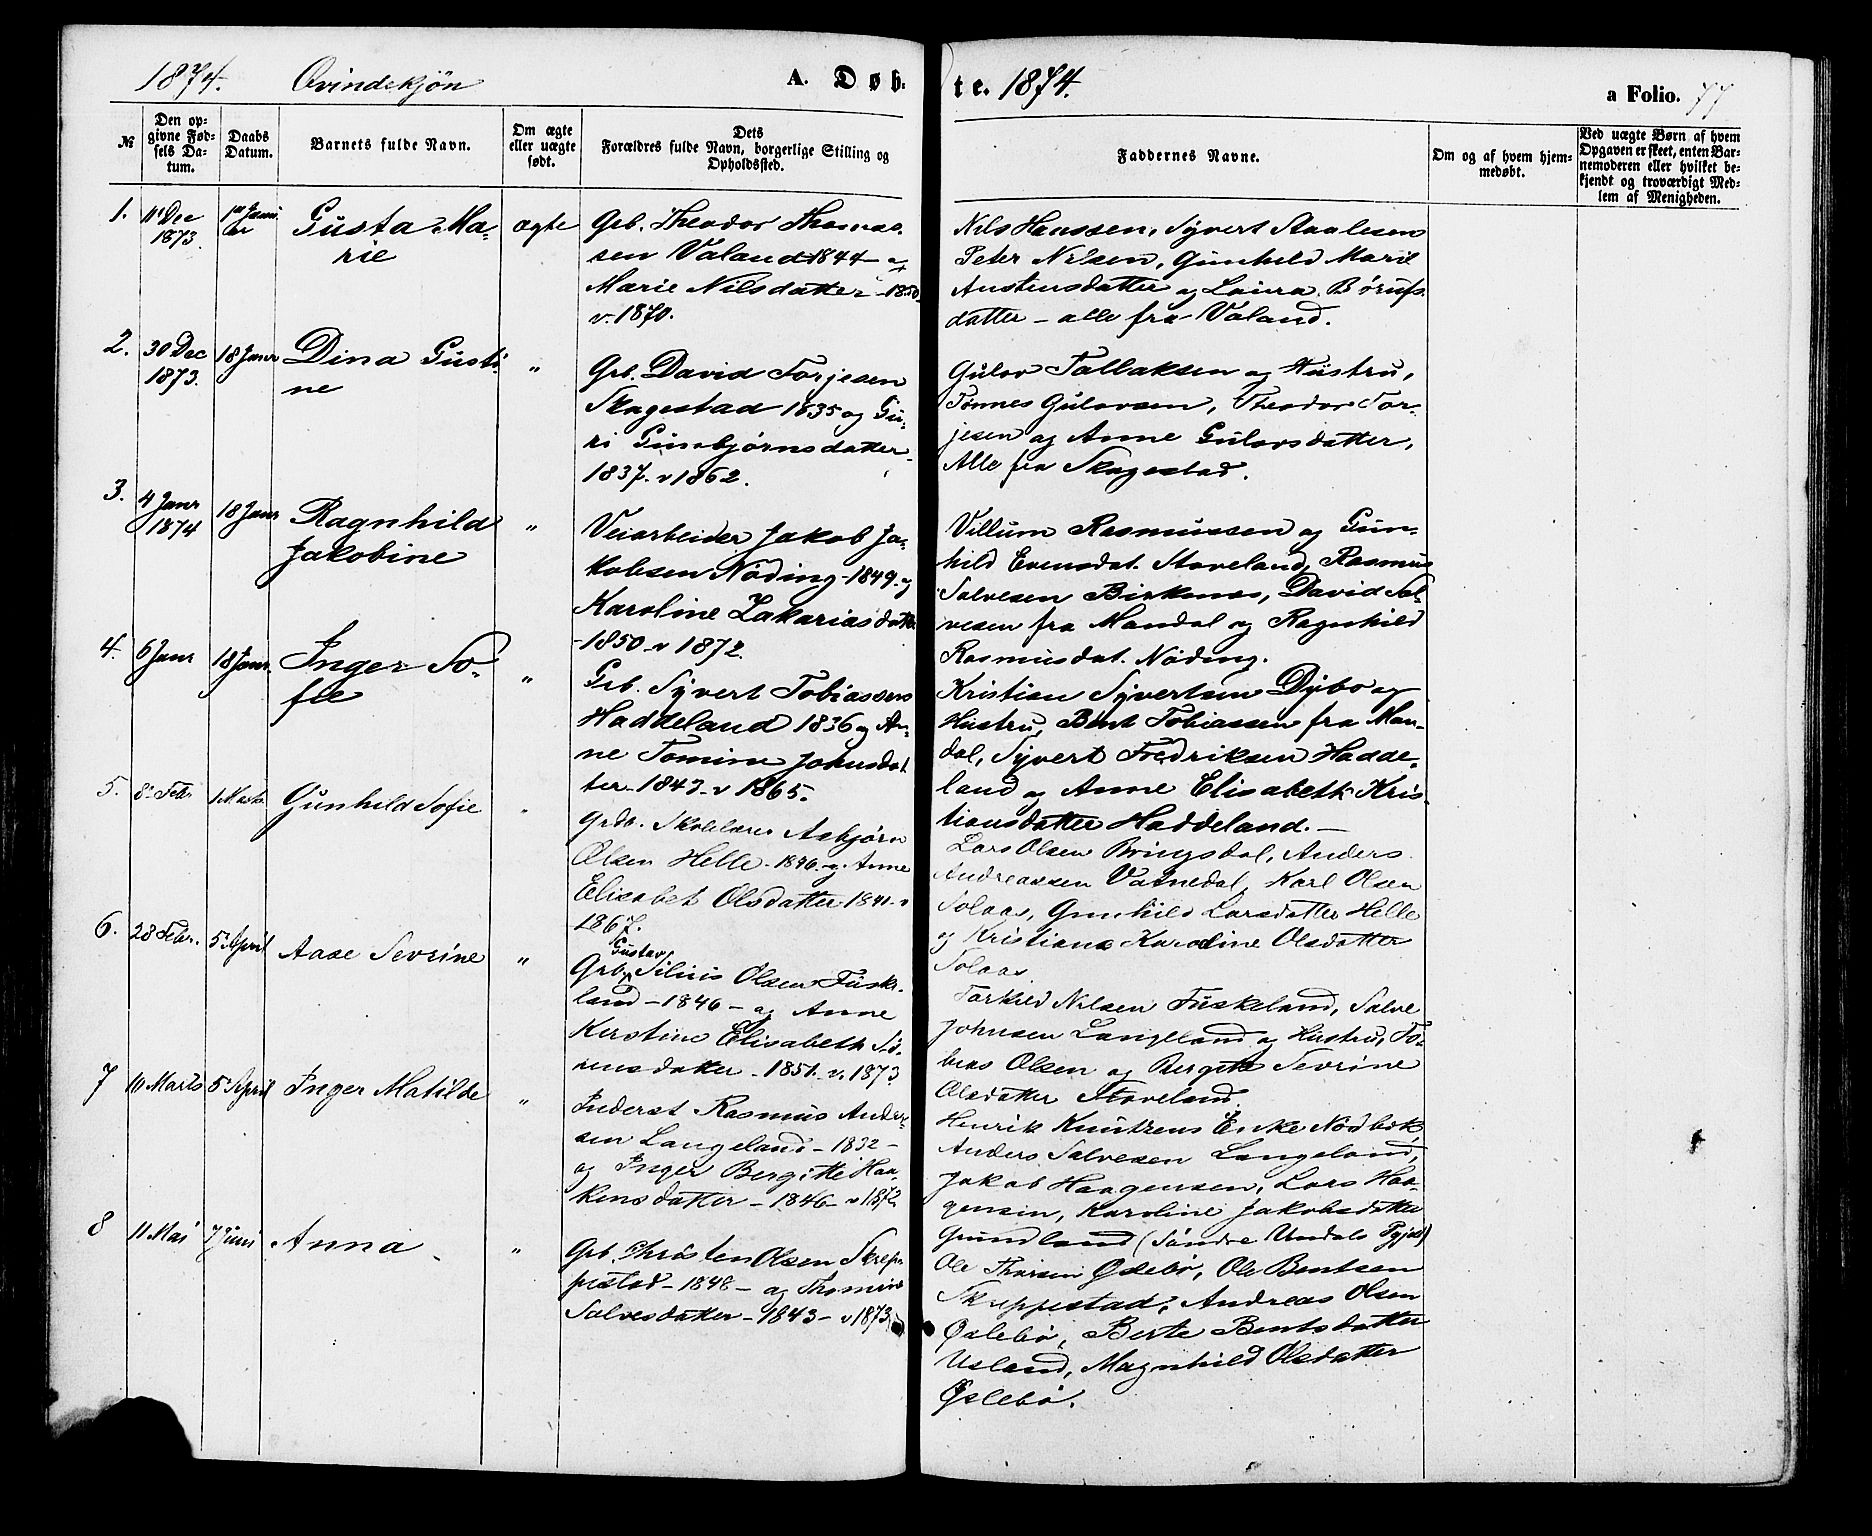 1874. Qvindekjön A. Døb- te. 1874. a Folio. 77
№
Den op-
givne Fød-
sels Da-
tum.
Daabs
Datum.
Barnets fulde Navn.
Om ægte
eller uægte
født.
Dets
Forældres fulde Navn, borgerlige Stilling og
Opholdssted.
Faddernes Navne.
Om og af hvem hjem-
medøbt.
Ved uægte Børn af hvem
Opgaven er skeet, enten Bar-
nemoderen eller hvilket be-
kjendt og troværdigt Med-
lem af Menigheden.
1.
11' Dec
1873.
1ste Janu-
ar
Gusta Ma-
rie
ægte
Grb. Theodor Thomas-
sen Valand 1844 - og
Marie Nilsdatter - 1850
v. 1870.
Nils Hanssen, Syvert Staalesen
Peter Nilsen, Gunhild Marie
Austensdatter og Laura Börufs-
datter - alle fra Valand.
2.
30 Dec
1873.
18 Janr
Dina Gusti-
ne
"
Grb. David Torjesen
Skagestad 1835 og Gu-
ri Gunbjörnsdatter
1837. v 1862.
Gulov Tallaksen og Hustru,
Tönnes Gulovsen, Theodor Tor-
jesen og Anne Gulovsdatter,
Alle fra Skagestad.
3.
4 Janr
1874
18 Janr
Ragnhild
Jakobine
"
Veiarbeider Jakob Ja-
kobsen Nöding - 1849 - og
Karoline Zakariasdatter
- 1850 - v 1872.
Villum Rasmussen og Gun-
hild Evensdat. Stoveland, Rasmus
Salvesen Birkenes, David Sal-
vesen fra Mandal og Ragnhild
Rasmusdat. Nöding.
4.
6 Janr
18 Janr.
Inger So-
fie
"
Grb. Syvert Tobiassen
Haddeland 1836 og An-
ne Tomine Johnsdat
ter - 1843 - v 1865.
Kristian Syvertsen Dybo og
Hustru, Bent Tobiassen fra Man-
dal, Syvert Fredriksen Hadde-
land og Anne Elisabeth Kris-
tiansdatter Haddeland. -
5.
8' Febr
1 Marts
Gunhild Sofie
"
Grdb. Skolelærer Asbjörn
Olsen Helle - 1846 - og Anne
Elisabet Olsdatter - 1841 - v
1867.
Lars Olsen Bringsdal, Anders
Andreassen Vatnedal, Karl Olsen
Solaas, Gunhild Larsdatter Helle
og Kristiane Karoline Olsdatter
Solaas.
6.
28 Febr.
5' April
Aase Sevrine
"
Gustav
Grb. Silius Olsen Fuske-
land - 1846 - og Anne
Kerstine Elisabeth Sö-
rensdatter - 1851 - v. 1873
Torkild Nilsen Fuskeland, Salve
Johnsen Langeland og Hustru, To-
bias Olsen og Bergitte Sevrine
Olsdatter Stoveland.
7
10 Marts
5' April
Inger Matilde
"
Inderst Rasmus Ander-
sen Langeland - 1832 -
og Inger Bergitte Haa-
kensdatter - 1846 - v 1872
Henrik Knutzens Enke Nödbek,
Anders Salvesen Langeland,
Jakob Haagensen, Lars Haa-
gensen, Karoline Jakobsdatter
Grundland (Söndre Undals Pgjd)
8
11 Mai
7 Juni
Anna
"
Grb. Thorsten Olsen Skrep-
pestad - 1848 - og Thomine
Salvesdatter - 1843 - v 1873
Ole Thorsen Öslebö, Ole Bentsen
Skreppestad, Andreas Olsen
Öslebö, Berte Bentsdatter
Usland, Magnhild Olsdatter
Öslebö.